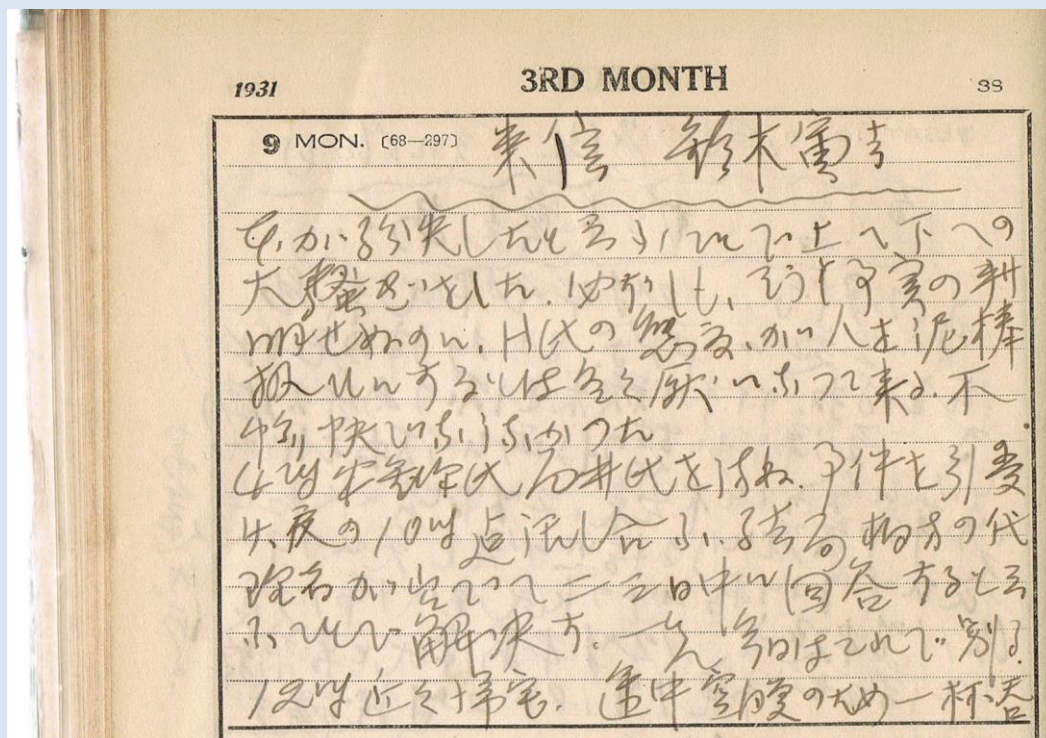 1931 3RD MONTH 38
9 MON. [68—297] 来信 鈴木寅吉
が紛失したと云ふことで上へ下への
大騒ぎをした. 必ずしも, そうと事実の判
明せぬのに, H氏の態度が人を泥棒
扱ひにするとは全く厭になつて来る. 不
愉快でならなかつた
4時 氏 向井氏を訪ね. 事件を引受
け, 夜の10時迄話し合ふ. 結局 相方の代
理者が出ていて二三日中に回答すると云
ふことで解決す. 一先 今日はこれで別る.
12時近く帰宅. 途中空腹のため一杯呑